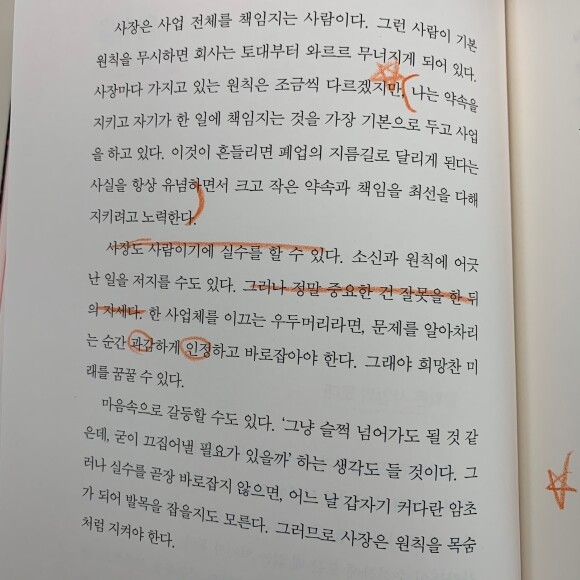 사장은 사업 전체를 책임지는 사람이다. 그런 사람이 기본
원칙을 무시하면 회사는 토대부터 와르르 무너지게 되어 있다.
사장마다 가지고 있는 원칙은 조금씩 다르겠지만, 나는 약속을
지키고 자기가 한 일에 책임지는 것을 가장 기본으로 두고 사업
을 하고 있다. 이것이 흔들리면 폐업의 지름길로 달리게 된다는
사실을 항상 유념하면서 크고 작은 약속과 책임을 최선을 다해
지키려고 노력한다.
사장도 사람이기에 실수를 할 수 있다. 소신과 원칙에 어긋
난 일을 저지를 수도 있다. 그러나 정말 중요한 건 잘못을 한 뒤
의 자세다. 한 사업체를 이끄는 우두머리라면, 문제를 알아차리
는 순간 과감하게 인정하고 바로잡아야 한다. 그래야 희망찬 미
래를 꿈꿀 수 있다.
마음속으로 갈등할 수도 있다. ‘그냥 슬쩍 넘어가도 될 것 같
은데, 굳이 끄집어낼 필요가 있을까’ 하는 생각도 들 것이다. 그
러나 실수를 곧장 바로잡지 않으면, 어느 날 갑자기 커다란 암초
가 되어 발목을 잡을지도 모른다. 그러므로 사장은 원칙을 목숨
처럼 지켜야 한다.